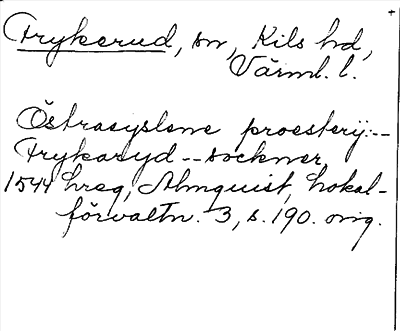 Frykerud, sn, Kils hd,
Värml. l.
Östrasyslene proesterij:--
Frykaryd -- sockner,
1544 Lreg, Almquist, Lokal-
förvaltn. 3, s. 190. orig.